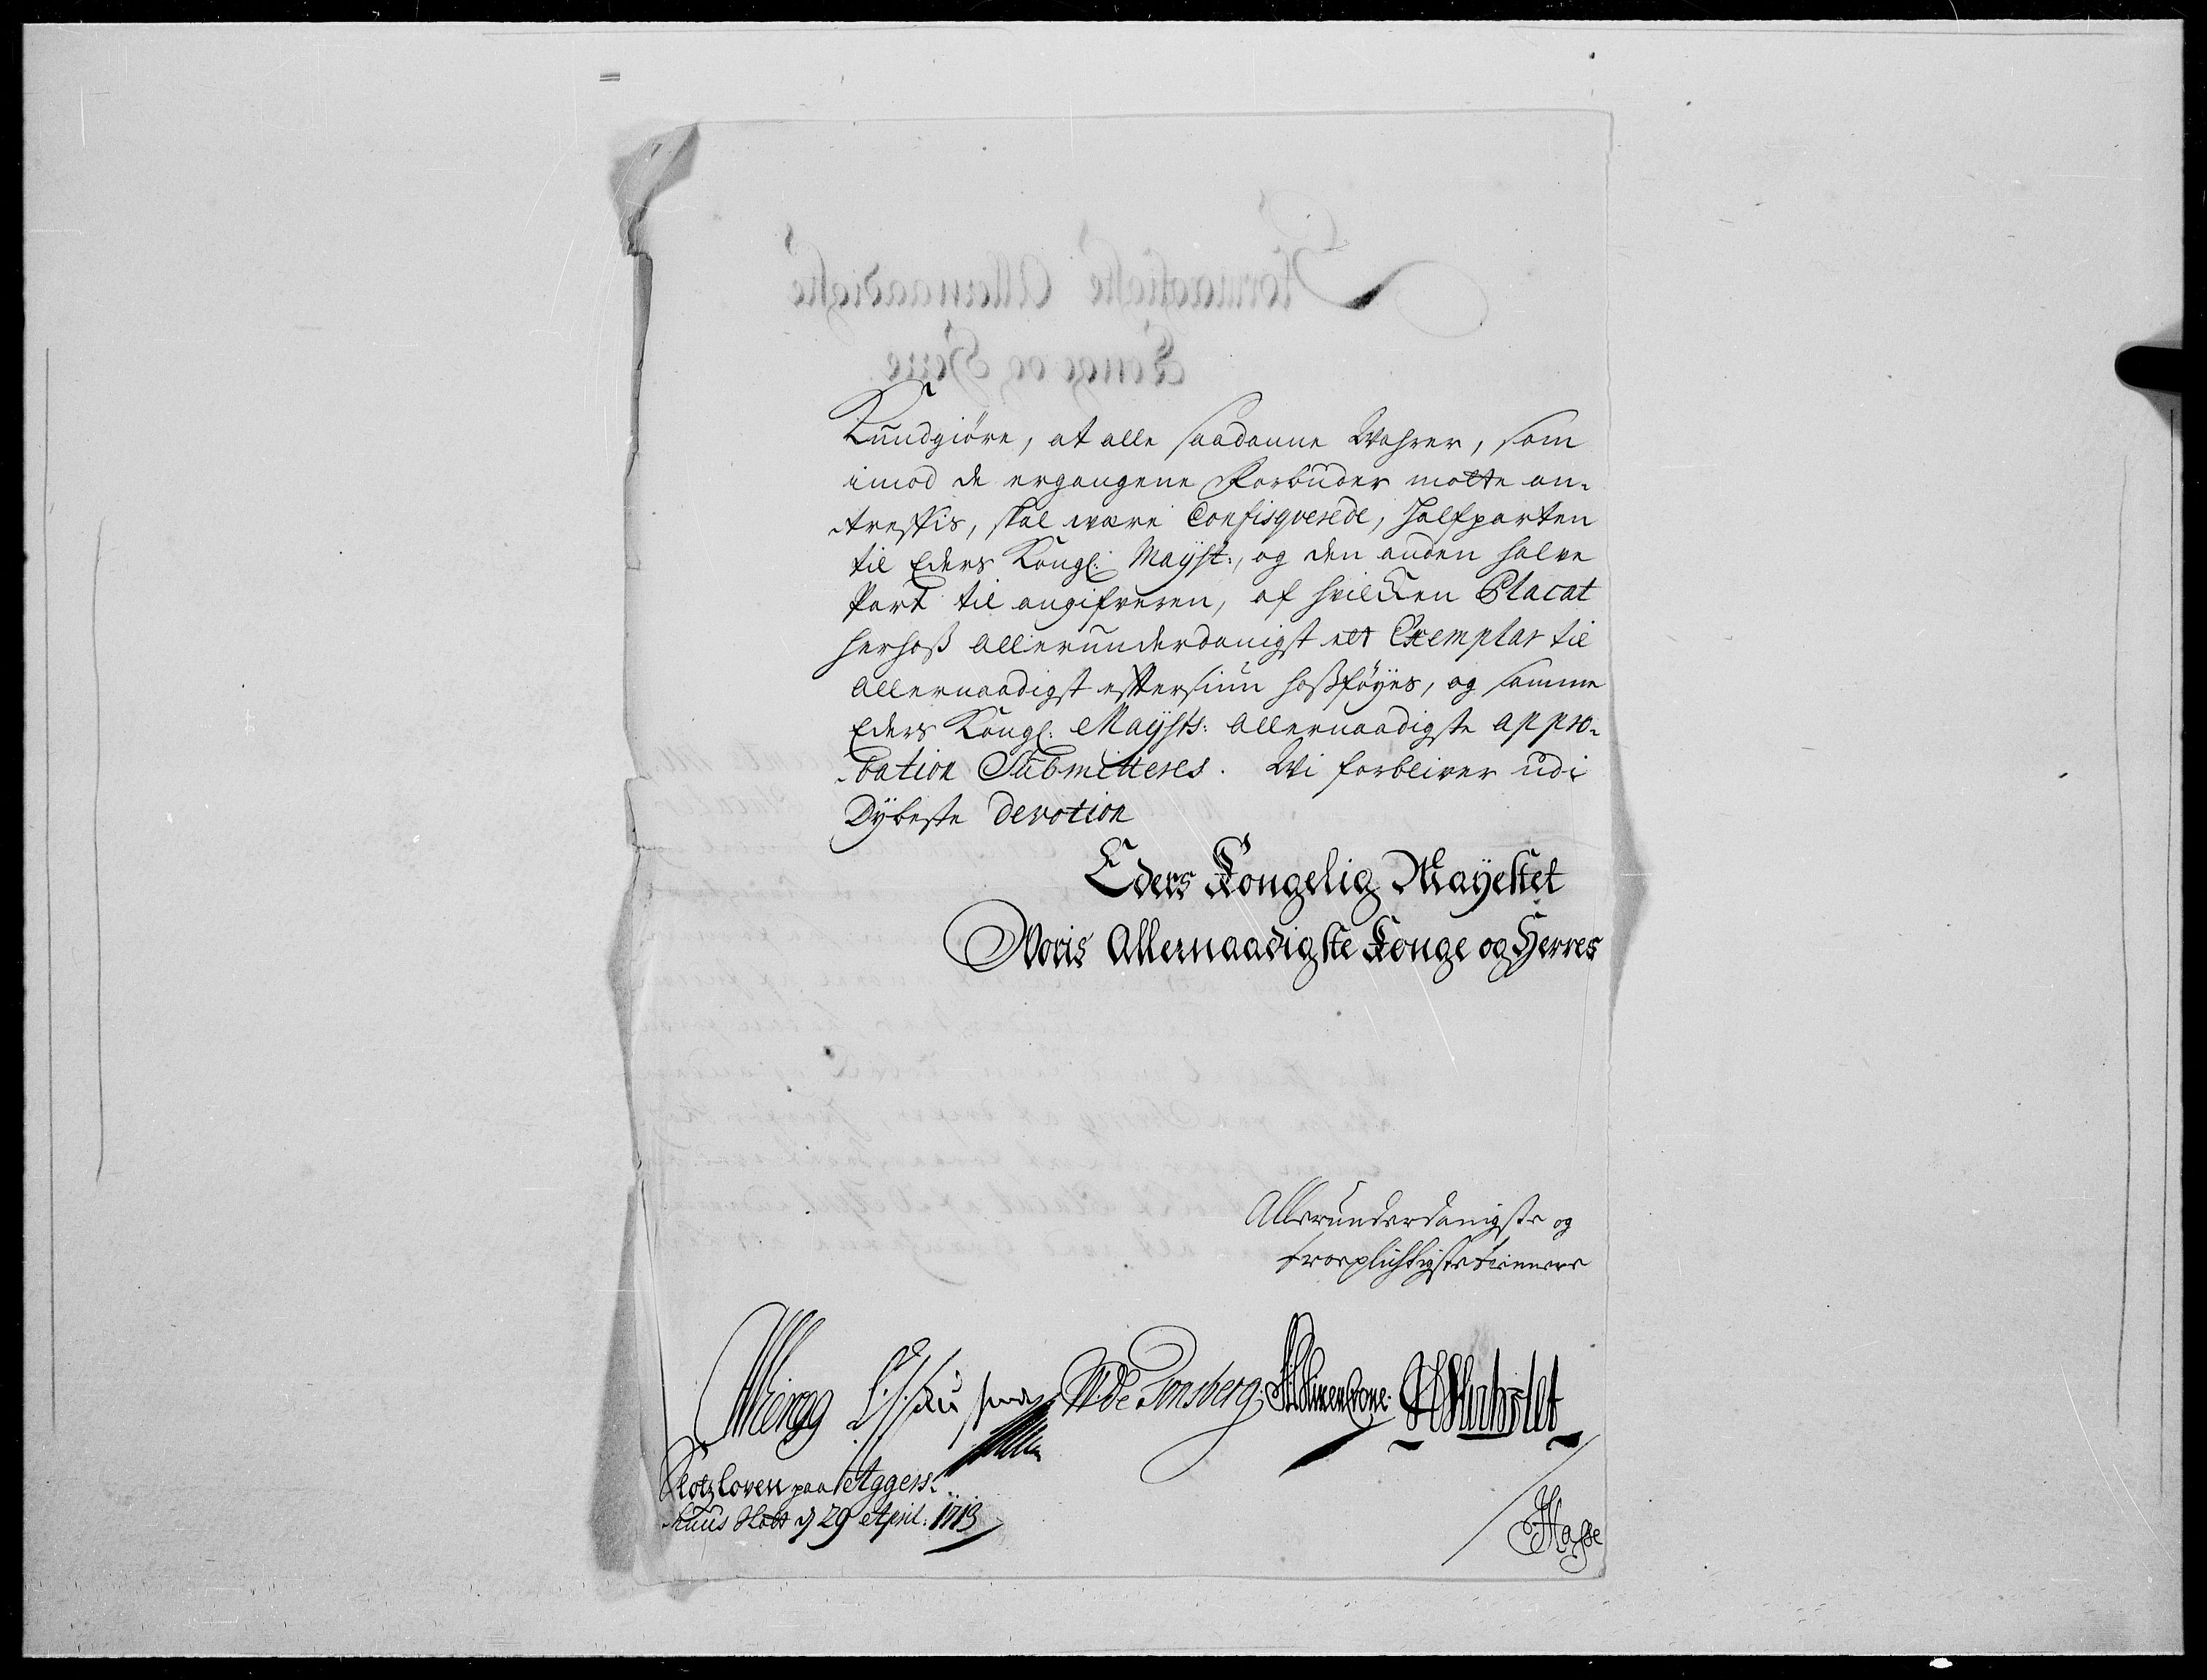 Kundgiöre, at alle saadanne Wahrer, som
imod de ergangene Forbuder motte an-
treffis, skal være Confisqverede, halfparten
til Eders Kongl: Mayst:, og den anden halve
Part til angifveren, af hvilcken Placat
herhoß allerunderdanigst ett Exemplar til
allernaadigst effterssiun hoßföyes, og samme
Eders Kongl. Maysts: allernaadigste appro-
bation Submitteres. Wi forbliver udi
Dybeste Devotion
Eders Kongelig Mayestet
Woris Allernaadigste Konge og Herres
Allerunderdanigste og
troepligtigste tienere
FKrag W: de Tonsberg.
Slotzloven paa Aggers-
huus Slott d 29 April: 1713